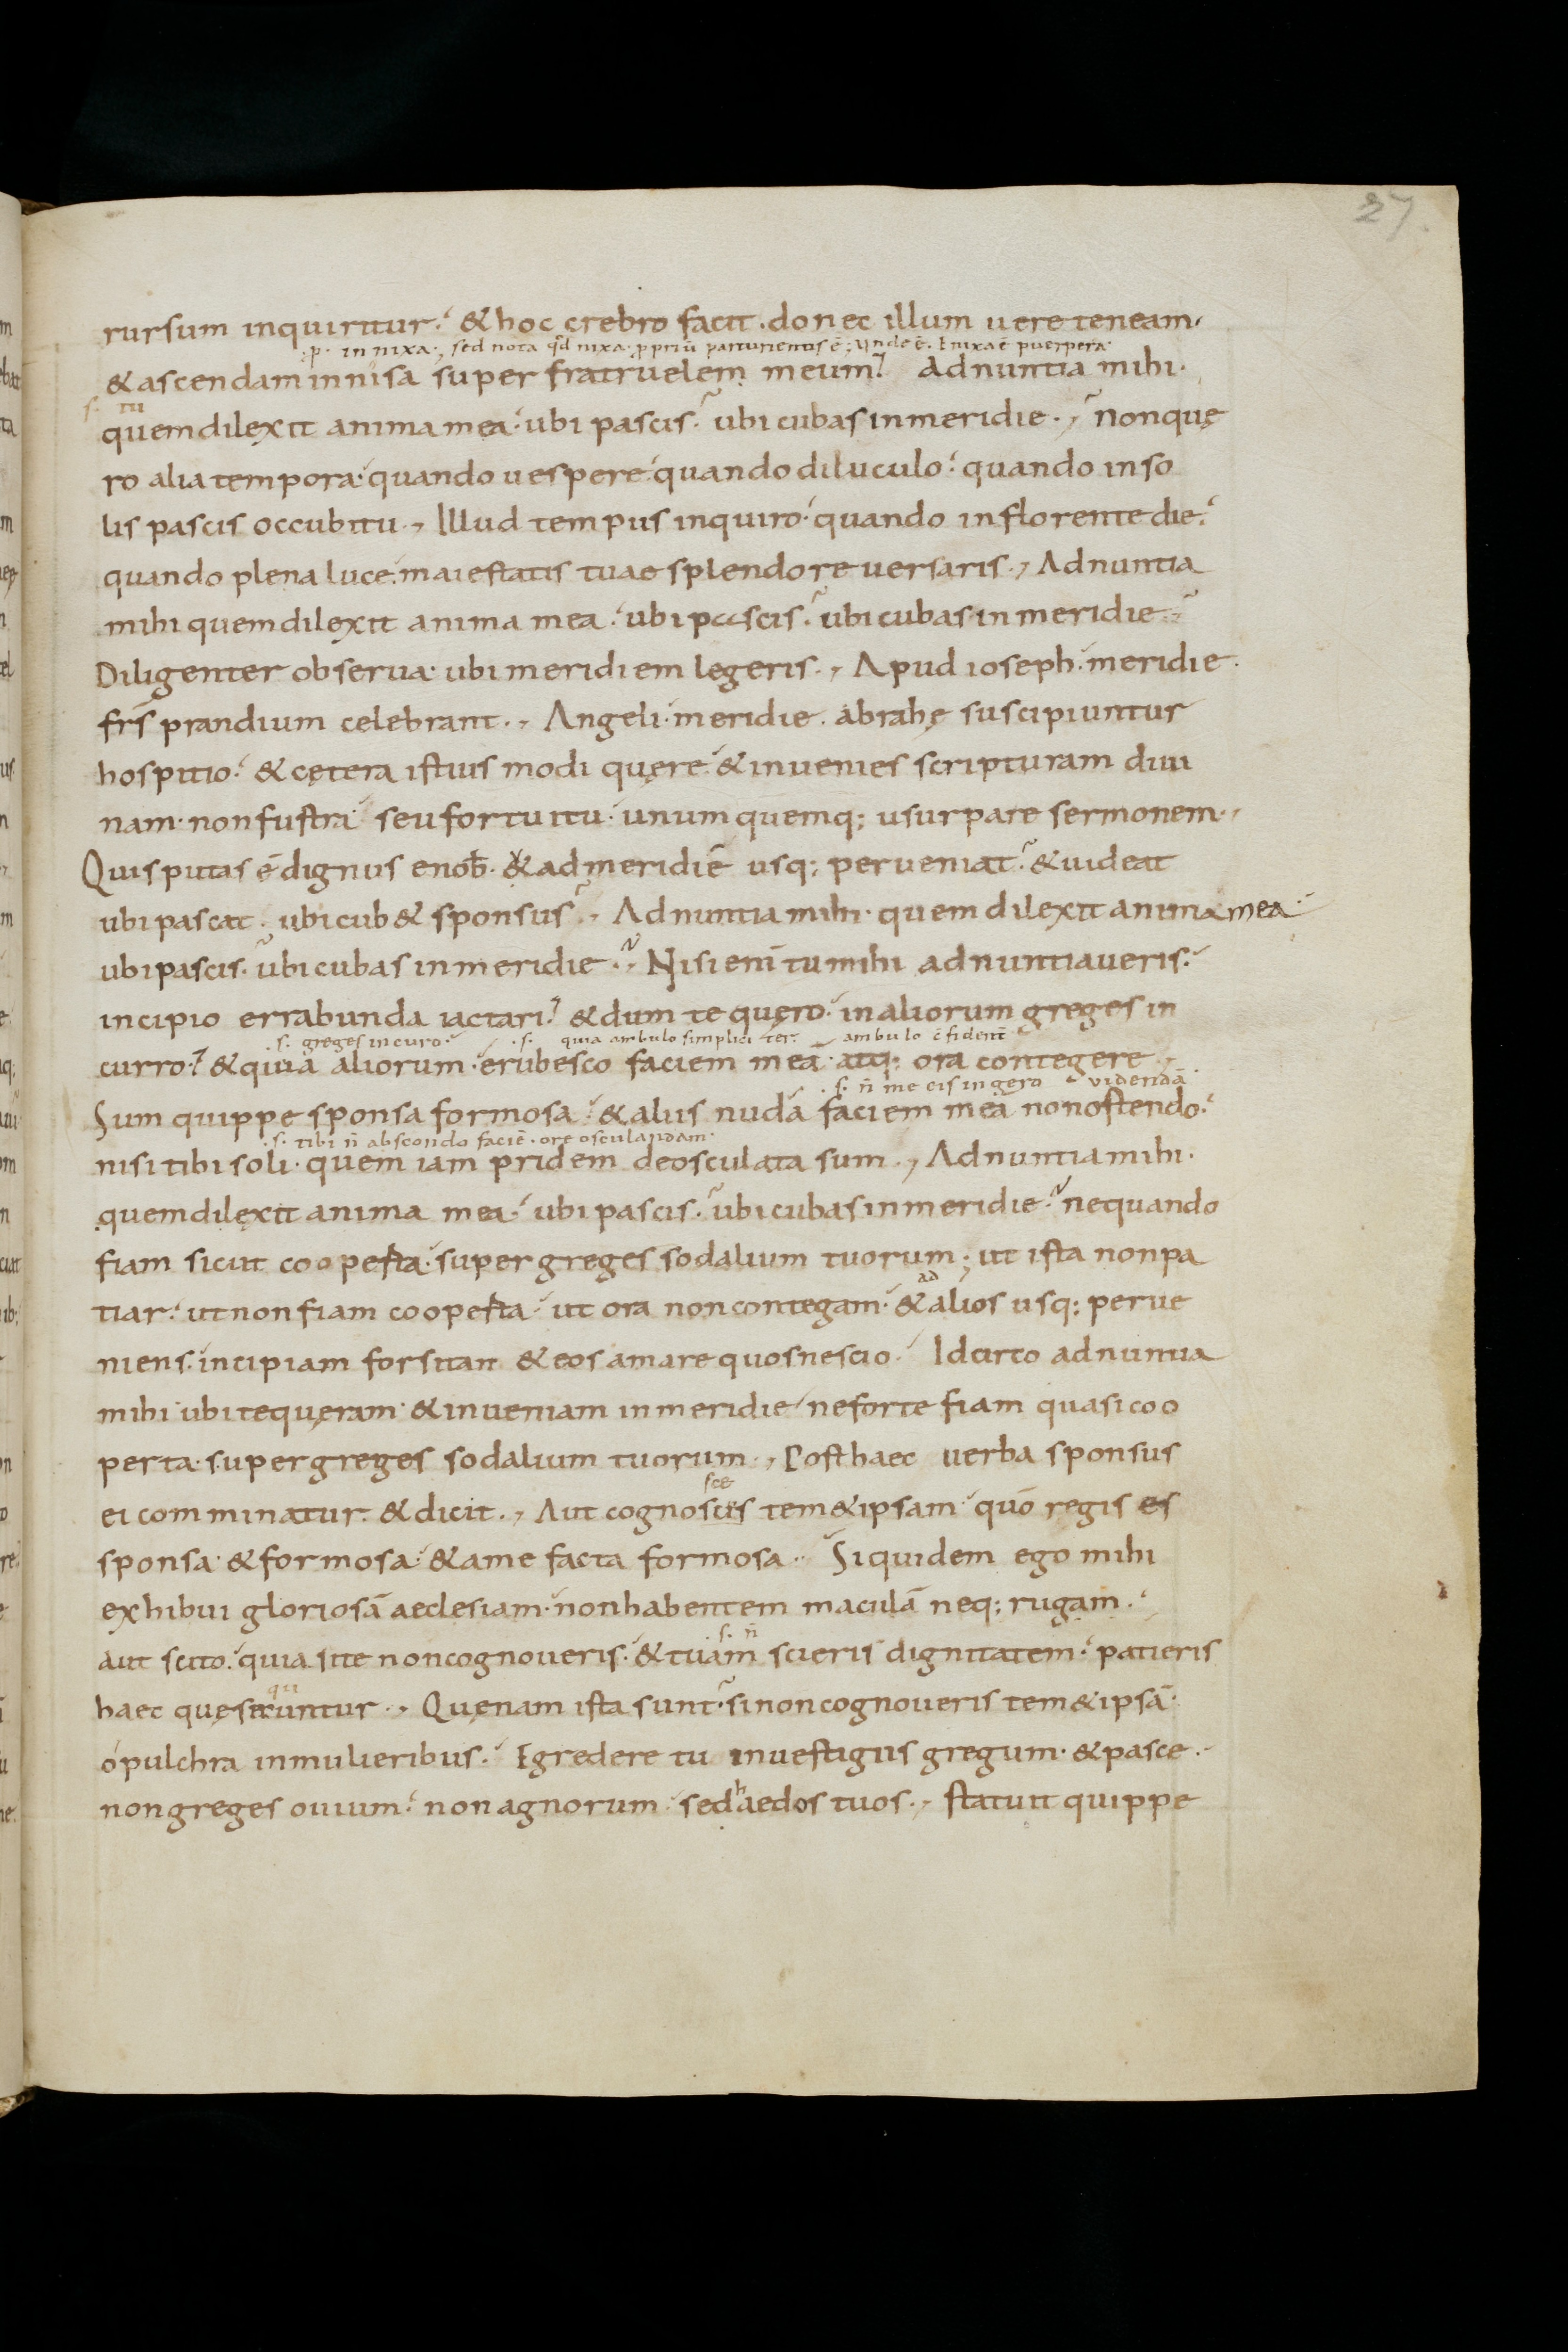 27
rursum inquiritur. & hoc crebro facit. donec illum uere teneam,
.p. in nixa. sed nota qd nixa. ppriū parturientis ē; Unde ē. Enixa ē puerpera.
& ascendam innisa super fratruelem meum. Adnuntia mihi.
s. tu
quem dilexit anima mea. ubi pascis. ubi cubas in meridie. Non quę
ro alia tempora. quando uespere. quando diluculo. quando in so
lis pascis occubitu. Illud tempus inquiro. quando in florente die.
quando plena luce. maiestatis tuae splendore uersaris. Adnuntia
mihi quem dilexit anima mea. ubi pascis. ubi cubas in meridie.
Diligenter obserua. ubi meridiem legeris. Apud ioseph. meridie.
frs̄ prandium celebrant. Angeli. meridie. abrahę suscipiuntur
hospitio. & cętera istius modi quęre. & inuenies scripturam diui
nam. non fustra seu fortuitu. unum quemq; usurpare sermonem.
Quis putas ē dignus e nob̄. & ad meridiē usq; perueniat. & uideat
ubi pascat. ubi cub& sponsus. Adnuntia mihi. quem dilexit anima mea.
ubi pascis. ubi cubas in meridie. Nisi enī tu mihi adnuntiaueris.
incipio errabunda iactari. & dum te quęro. in aliorum greges in
s. greges incuro. s. quia ambulo simplici ter. ambulo c̄fident̄
curro. & quia aliorum. erubesco faciem meā. atq; ora contegere.
s. n̄ me eis ingero videndā
Sum quippe sponsa formosa. & aliis nudā faciem meā non ostendo.
s. tibi n̄ abscondo faciē. ore osculandam.
nisi tibi soli. quem iam pridem deosculata sum. Adnuntia mihi.
quem dilexit anima mea. ubi pascis. ubi cubas in meridie. nequando
fiam sicut cooperta. super greges sodalium tuorum; ut ista non pa
ad
tiar. ut non fiam cooperta. ut ora non contegam. & alios usq; perue
niens. incipiam forsitan & eos amare quos nescio. Idcirco adnuntia
mihi ubi te quęram. & inueniam in meridie. ne forte fiam quasi coo
perta. super greges sodalium tuorum. Post haec uerba sponsus
sce
ei comminatur. & dicit. Aut cognoscis tem&ipsam. quō regis es
sponsa. & formosa. & a me facta formosa. Siquidem ego mihi
exhibui gloriosā aeclesiam. non habentem maculā neq; rugam.
s. n̄
aut scito. quia si te non cognoueris. & tuam scieris dignitatem. patieris
qu
haec quę secuntur. Quęnam ista sunt. si non cognoueris tem&ipsā.
o pulchra in mulieribus. Egredere tu in uestigiis gregum. & pasce.
h
non greges ouium. non agnorum. sed aedos tuos. Statuit quippe